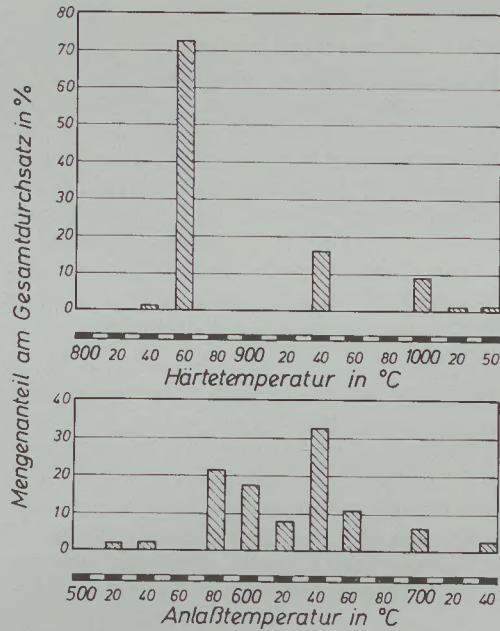 Mengenanteil am Gesamtdurchsatz in %
80
70
60
50
40
30
20
10
0
800 20 40 60 80 900 20 40 60 80 1000 20 50
Härtetemperatur in °C
40
30
20
10
0
500 20 40 60 80 600 20 40 60 80 700 20 40
Anlaßtemperatur in °C